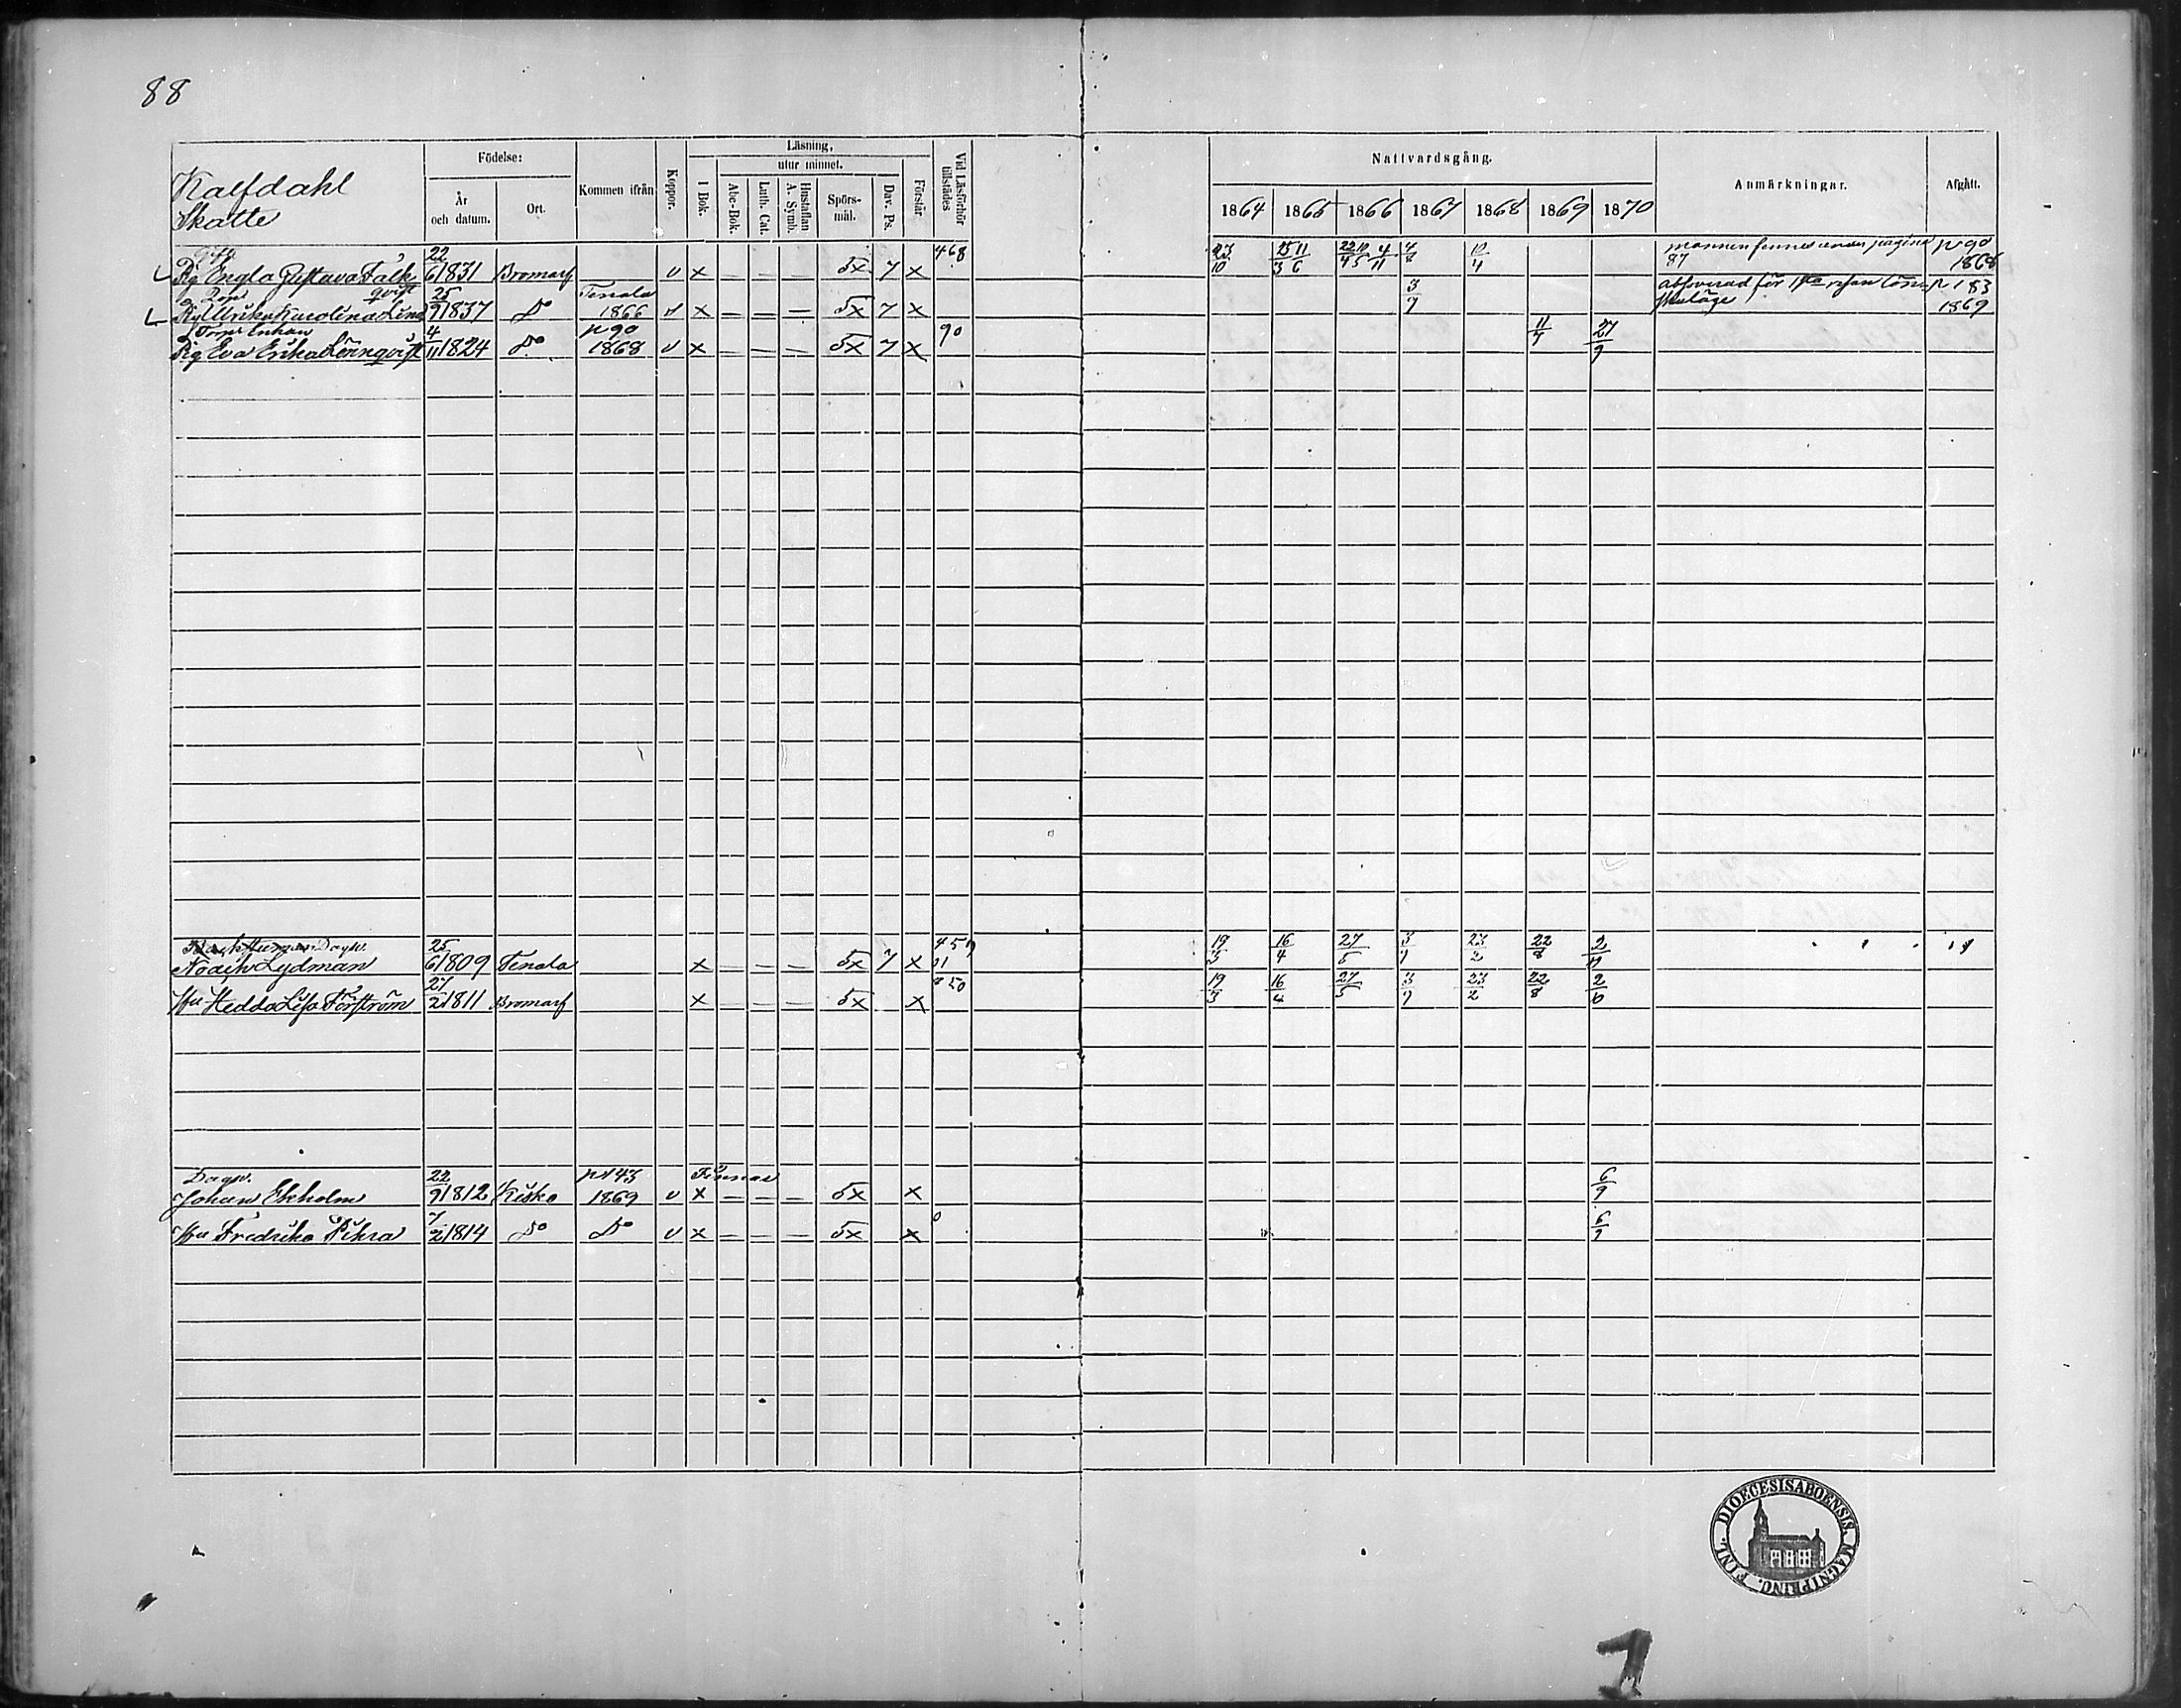 88
Kalfdahl
Skatte
Födelse:
År och datum.
Ort.
Kommen ifrån
Koppor.
Läsning,
I Bok.
utur minnet.
Abc-Bok.
Luth. Cat.
Hustaflan A. Symb.
Spörs-mål.
Dav. Ps.
Förstår.
Vid Läsförhör tillstädes
Nattvardsgång.
1864 1865 1866 1867 1868 1869 1870
Anmärkningar.
Afgått.
22 468 23 25 11 22 10 4 10 mannen finnes under pagina p 90
Pig Engla Gustava Falk 6 1831 Bromarf v x — — — 5x 7 x 10 3 6 4 5 11 4 87 1868
qvist 25 Tenala 3 p 183
Ulrika Karolina Lind 9 1837 Do 1866 x — — — 5x 7 x 7 1869
4 p 90 90 11 27
Pig Eva Erika Lönnqvist 11 1824 Do 1868 v x — — — 5x 7 x 9
Dagk. 25 19 16 27 3 23 22 2
Lydman 6 1809 Tenala x — — — 5x 7 x 4 5 2 8
27 19 16 27 3 23 22 2
Hu Hedda Lisa Forsström 2 1811 Bromarf x — — — 5x x 3 4 5 9 2 8
Dagk. 22 p 143 Finnas 6
Johan Ekholm 9 1812 Kisko 1869 v x — — — 5x x 9
7 6
Hu Fredrika 2 1814 Do Do v x — — — 5x x 9
FINL. DIOECESIS ABOENSIS. MAGNI PRINC.
1